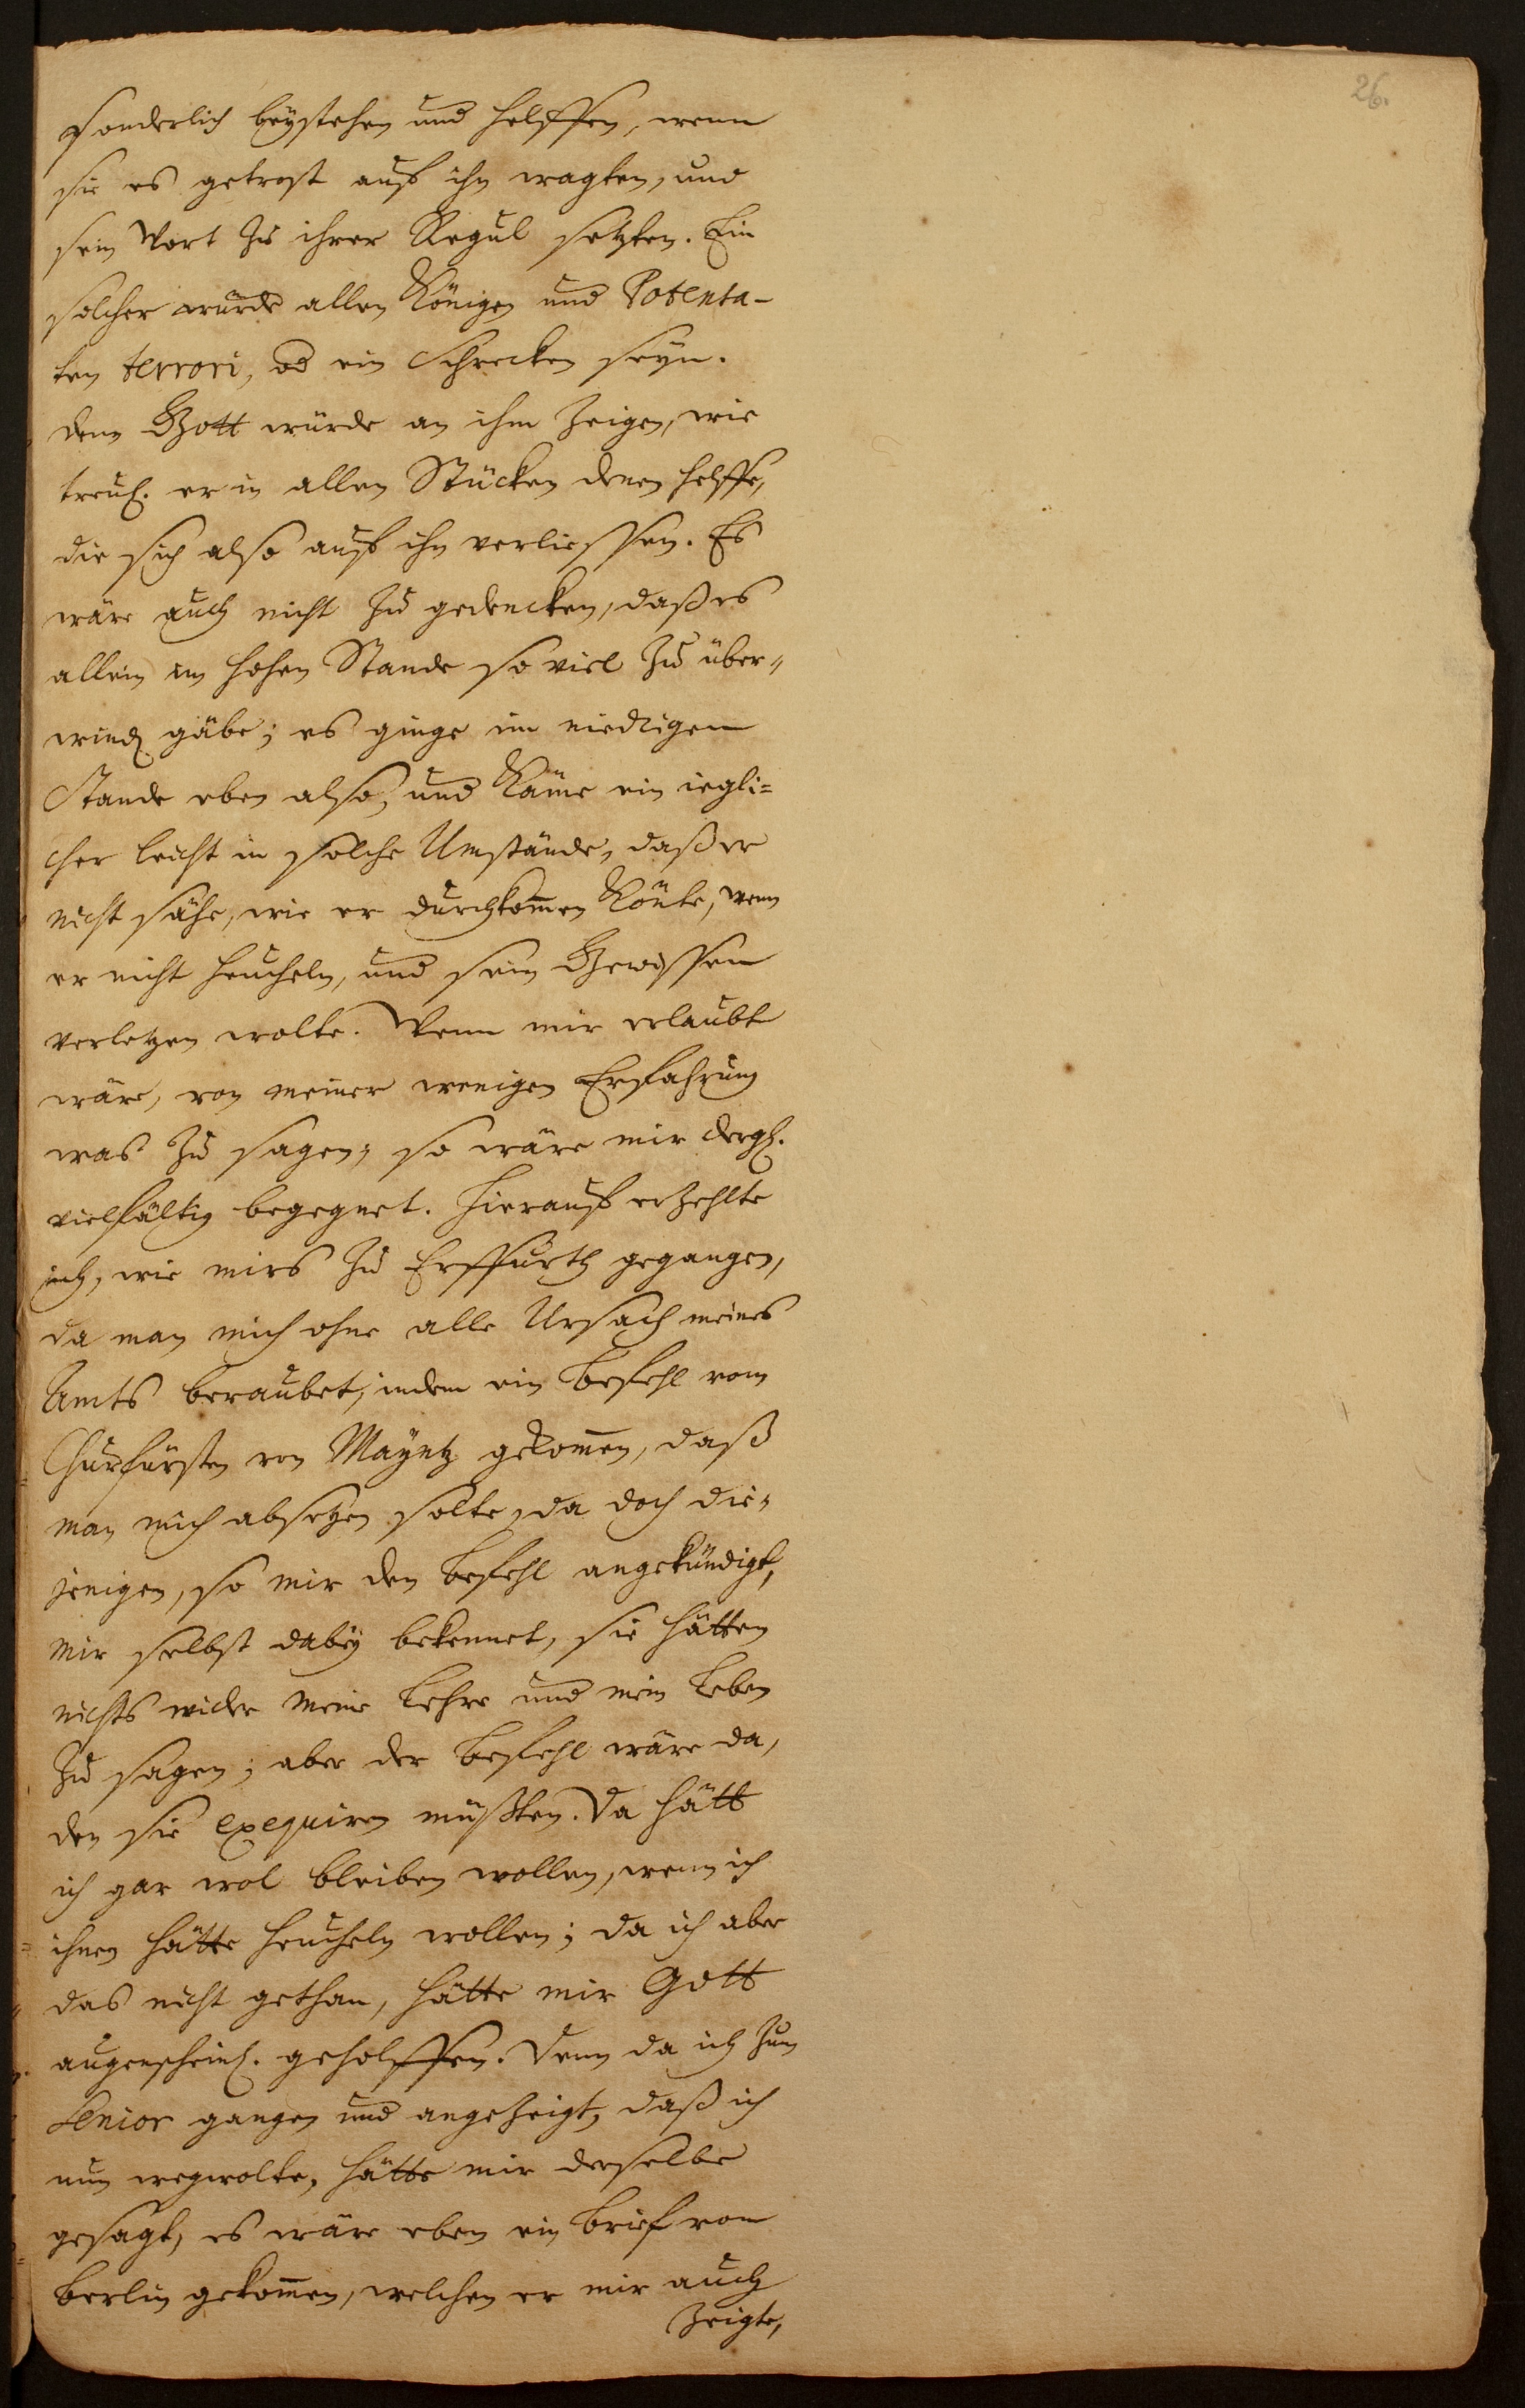 26.
sonderlich beystehen und helffen, wenn
sie es getrost auf ihn wagten, und
sein Wort zu ihrer Regul setzten. Ein
solcher würde allen Königen und Potenta-
ten terrori, od ein Schrecken seyn.
denn Gott würde an ihm zeigen, wie
treul. er in allen Stücken denen helffe,
die sich also auf ihn verliessen. Es
wäre auch nicht zu gedencken, daß es
allein im hohen Stande so viel zu über-
wind gäbe; es ginge im niedrigen
Stande eben also, und käme ein iegli-
cher leicht in solche Umstände, daß er
nicht sähe, wie er durchkom̅en kön̅te, wenn
er nicht heucheln, und sein Gewissen
verletzen wolte. Wenn mir erlaubt
wäre, von meiner wenigen Erfahrung
was zu sagen, so wäre mir dergl.
vielfältig begegnet. Hierauf erzehlte
ich, wie mirs zu Erffurth gegangen,
da man mich ohne alle Ursach meines
Amts beraubet, indem ein Befehl vom
Churfürsten von Mayntz gekom̅en, daß
man mich absetzen solte, da doch die-
jenigen, so mir den Befehl angekündigt,
mir selbst dabey bekennet, sie hätten
nichts wider meine Lehre und mein Leben
zu sagen; aber der Befehl wäre da,
den sie exequiren müßten. Da hätt
ich gar wol bleiben wollen, wenn ich
ihnen hätte heucheln wollen; da ich aber
das nicht gethan, hätte mir Gott
augenscheinl. geholffen. Denn da ich zum
Senior gangen und angezeigt, daß ich
nun wegwolte, hätte mir derselbe
gesagt, es wäre eben ein Brief von
Berlin gekom̅en, welchen er mir auch
zeigte,